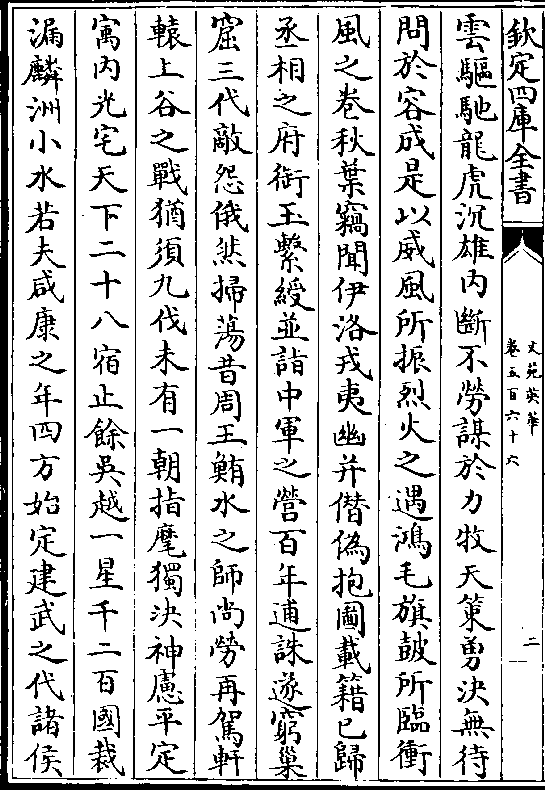 欽定四庫全書
文苑英華
卷五百六十六
二
雲驅馳龍虎沉雄内斷不勞謀於力牧天策勇決無待
問於容成是以威風所振烈火之遇鴻毛旗鼓所臨衝
風之卷秋葉竊聞伊洛戎夷幽并僭偽抱圖載籍已歸
丞相之府銜玉繫綬並詣中軍之營百年逋誅遂窮巢
窟三代敵怨俄然掃蕩昔周王鮪水之師尚勞再駕軒
轅上谷之戰猶須九伐未有一朝指麾獨決神慮平定
寓内光宅天下二十八宿止餘吳越一星千二百國裁
漏麟洲小水若夫咸康之年四方始定建武之代諸侯